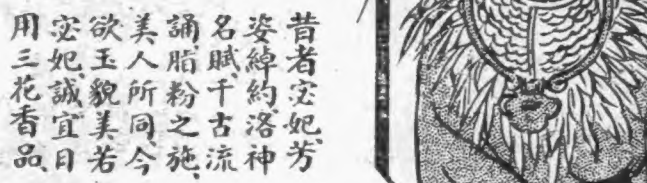 昔者宓妃、芳
姿綽約、洛神
名賦、千古流
誦、脂粉之施、
美人所同、今
欲玉貌美若
宓妃、誠宜日
用三花香品、